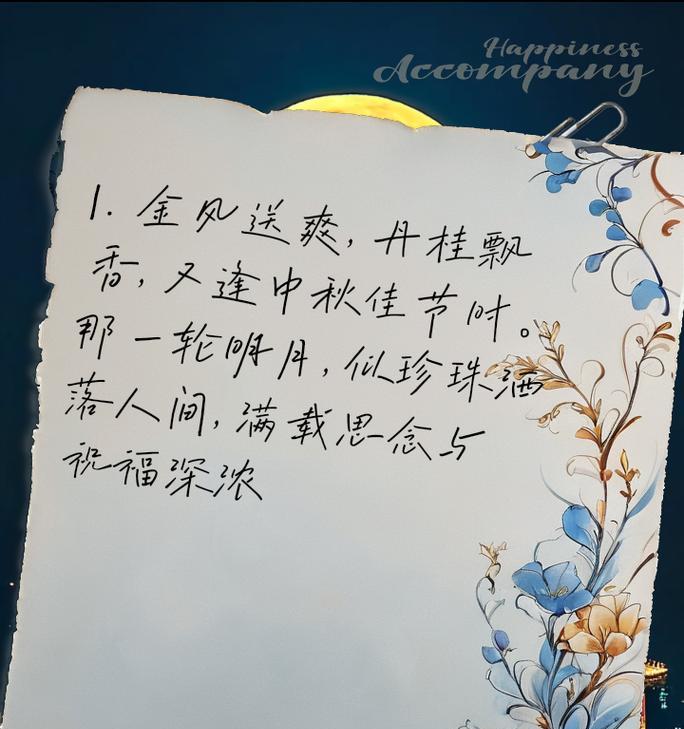 Happiness
Accompany
1. 金风送爽，丹桂飘
香，又逢中秋佳节时。
那一轮明月，似珍珠洒
落人间，满载思念与
祝福深浓